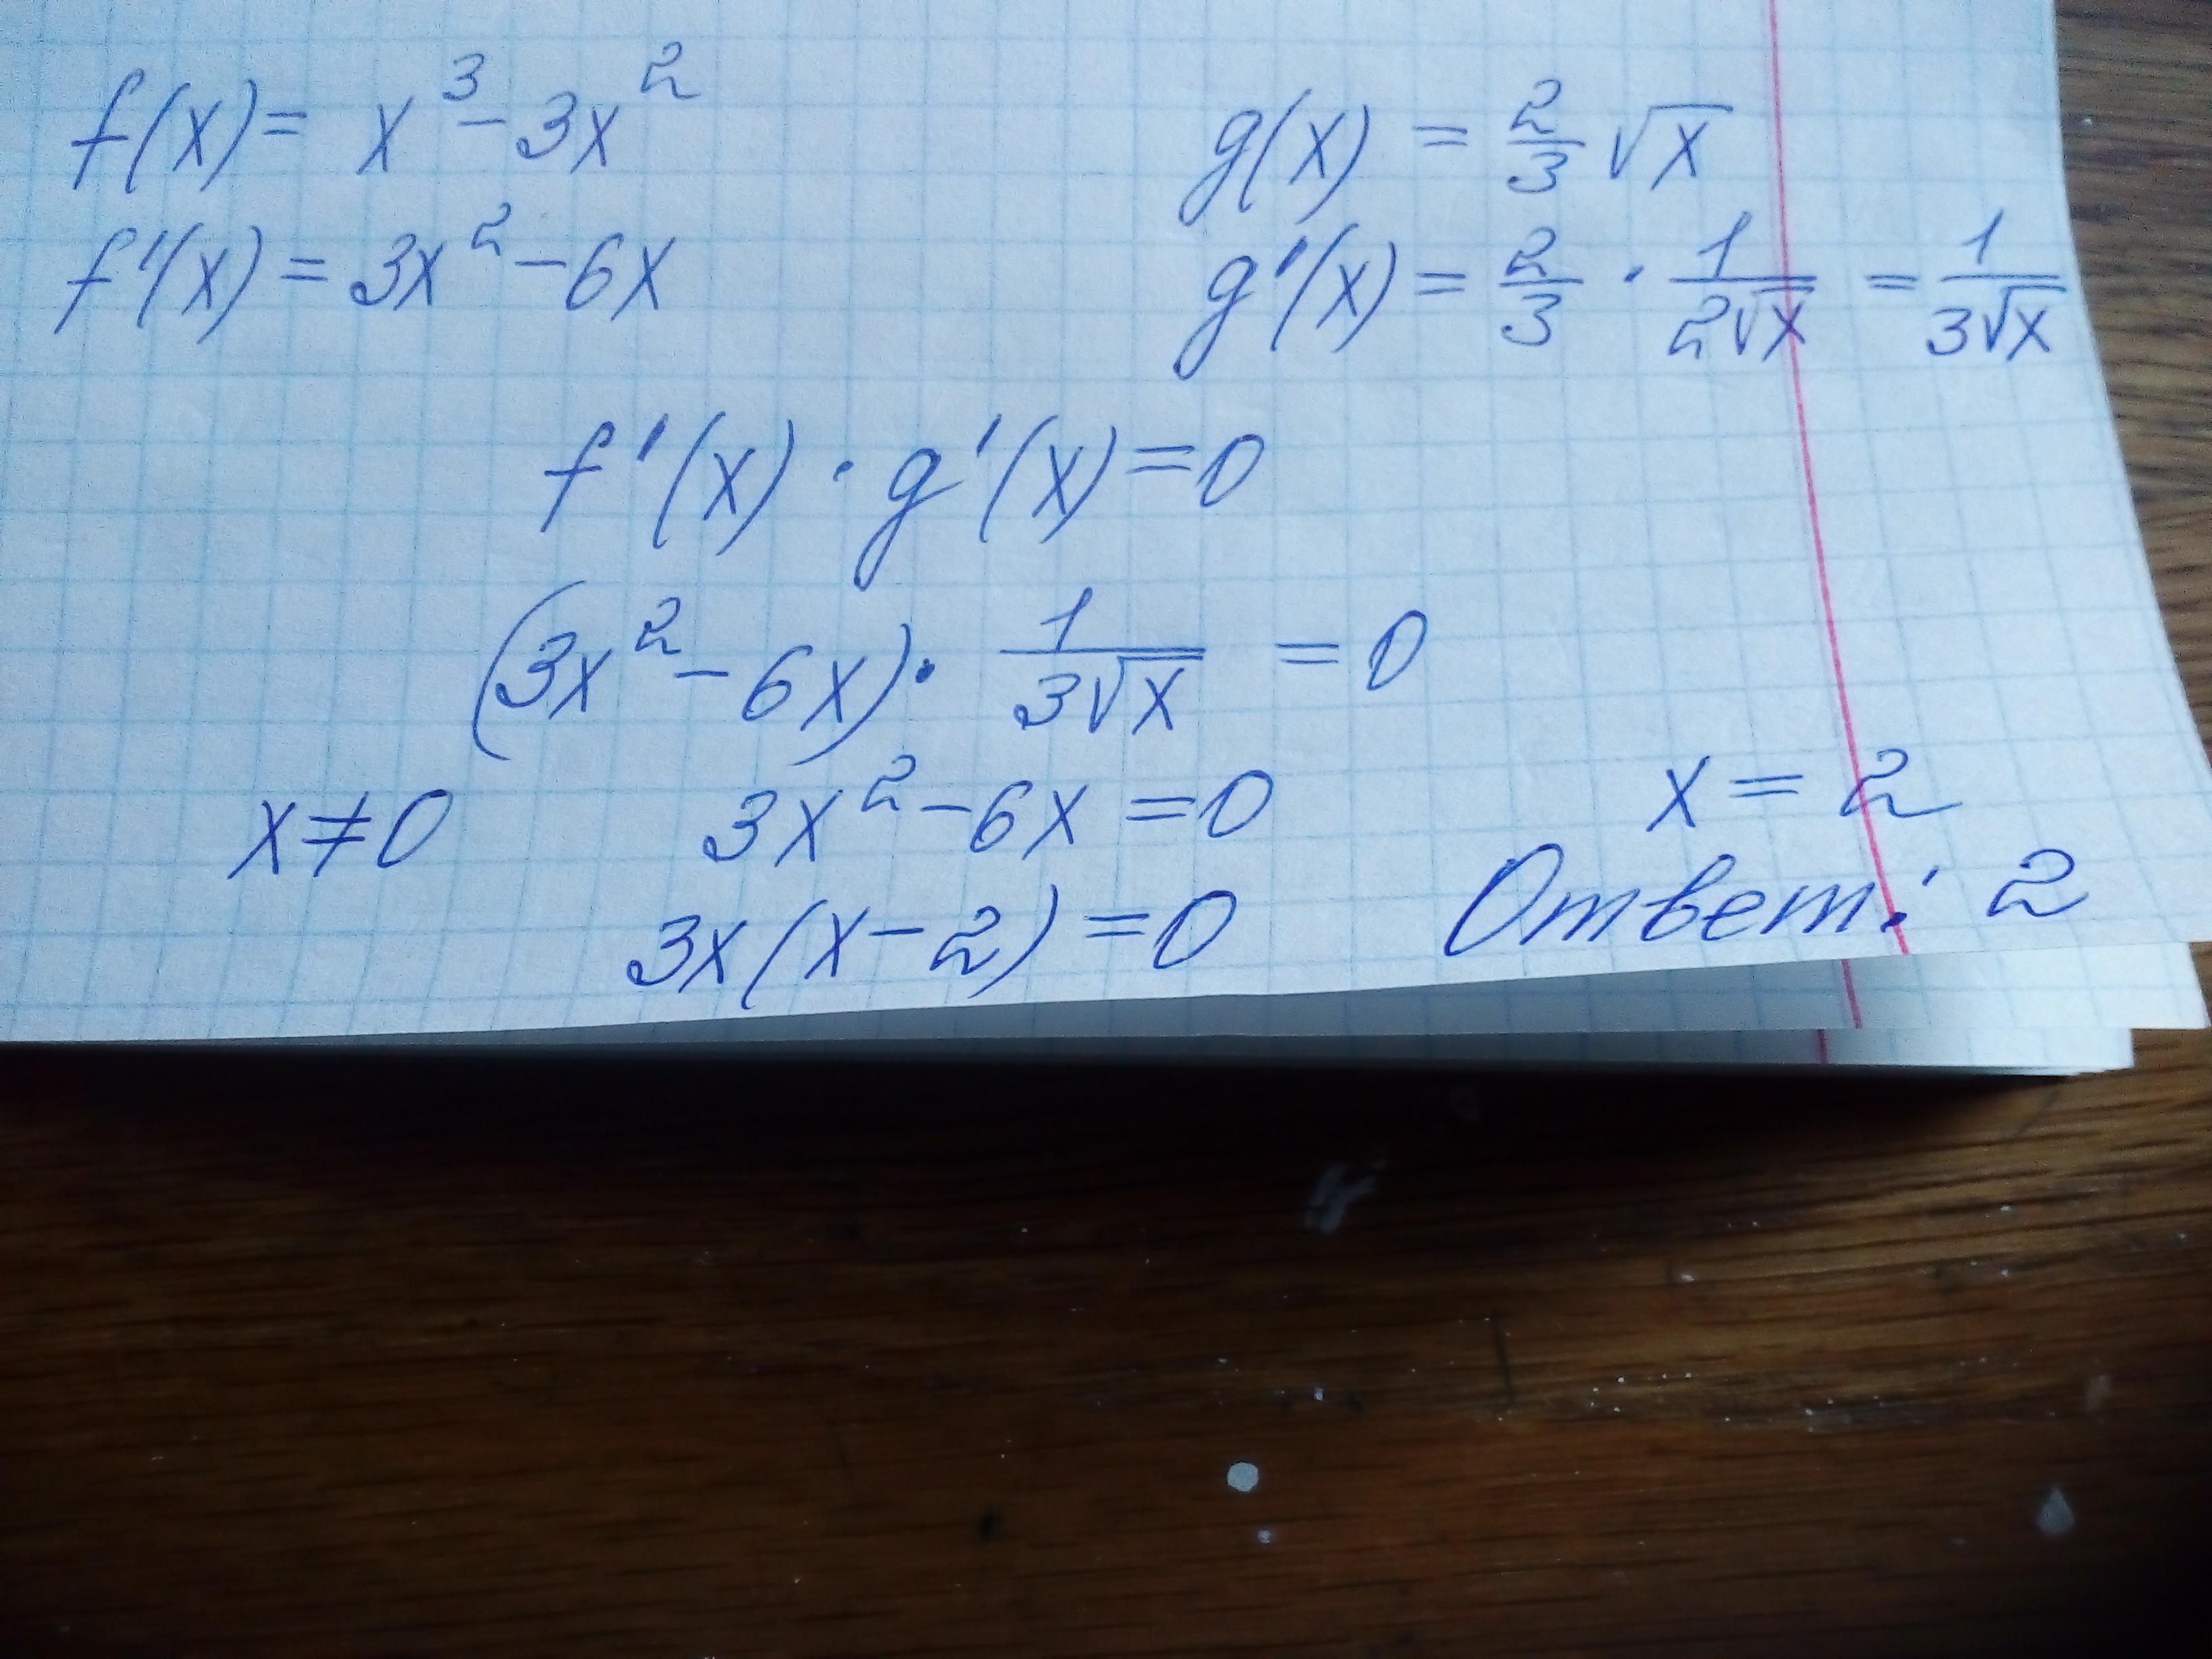 f(x) = x³ - 3x²
g(x) = 2/3 √x
f'(x) = 3x² - 6x
g'(x) = 2/3 · 1/(2√x) = 1/(3√x)
f'(x) · g'(x) = 0
(3x² - 6x) · 1/(3√x) = 0
x ≠ 0
3x² - 6x = 0
x = 2
3x(x - 2) = 0
Ответ: 2